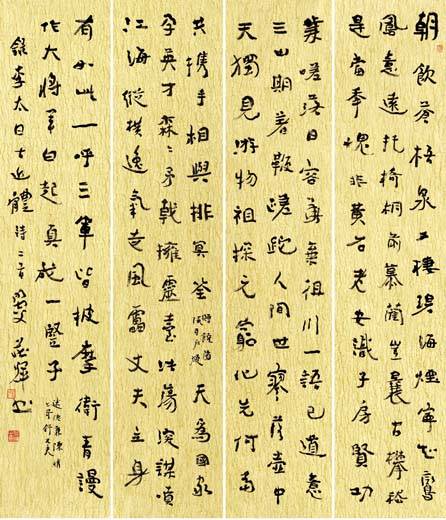 朝飲蒼梧泉夕棲碧海煙寧知鸞
鳳意遠托椅桐前慕藺豈曩古攀嵇
是當年愧非黃石老安識子房賢功
業嗟落日容華棄徂川一語已道意
三山期著鞭蹉跎人間世寥落壺中
天獨見游物祖探元窮化先何當
共攜手相與排冥筌
贈饒陽
張司戶燧
天為國家
孕英才森々矛戟擁靈臺浩蕩深謀噴
江海縱橫逸氣走風雷丈夫立身
有如此一呼三軍皆披靡衛青謾
作大將軍白起真成一豎子
述德兼陳情
上哥舒大夫
錄李太白古近體詩二首